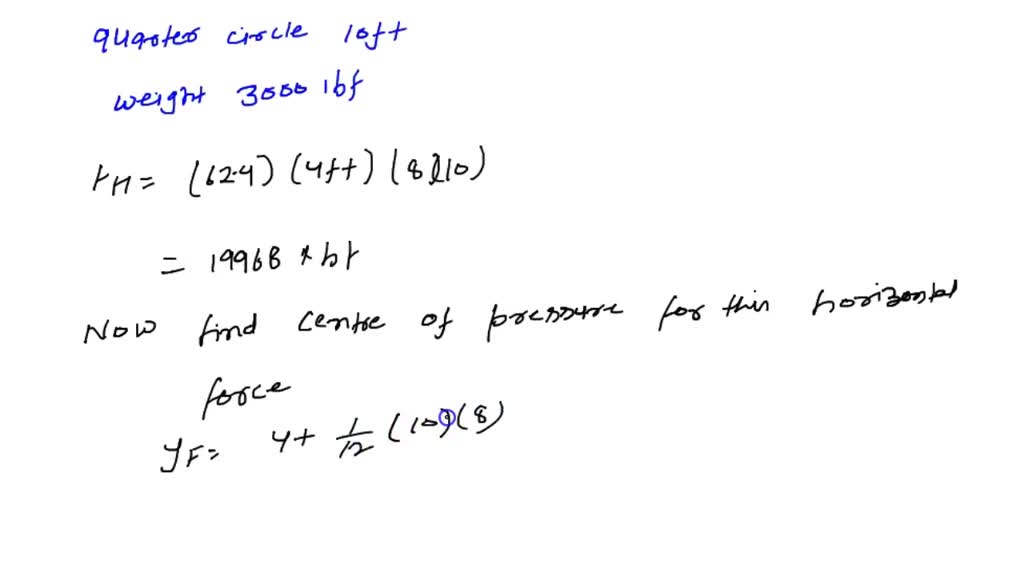 quarter circle 10ft
weight 3000 lbf
FH = (62.4) (4ft) (8)(10)
= 19968 * bf
Now find centre of pressure for this horizontal
force
yF = 4 + 1/12 (10)(8)